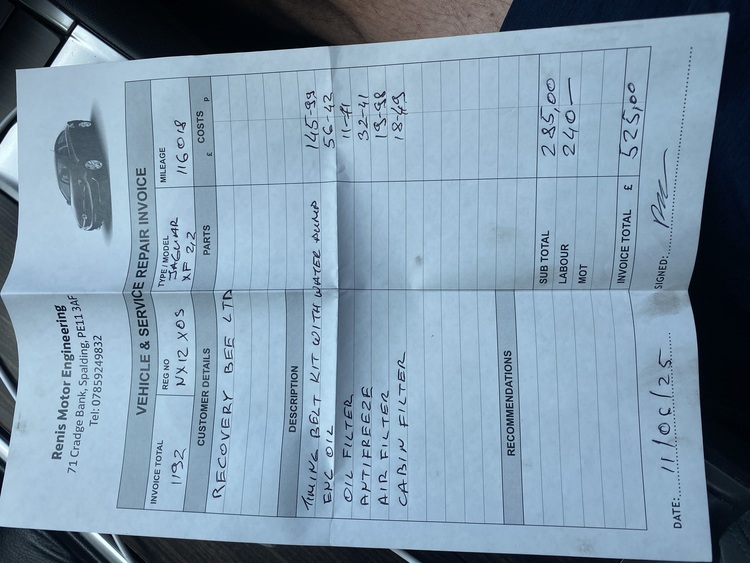 Renis Motor Engineering
71 Cradge Bank, Spalding, PE11 3AF
Tel: 07859249832
VEHICLE & SERVICE REPAIR INVOICE
INVOICE TOTAL REG NO TYPE / MODEL MILEAGE
1192 NX12 XOS JAGUAR XF 2,2 116018
CUSTOMER DETAILS PARTS £ COSTS P
RECOVERY BEE LTD
DESCRIPTION
TIMING BELT KIT WITH WATER PUMP 145-99
ENG OIL 56-42
OIL FILTER 11-71
ANTIFREEZE 32-41
AIR FILTER 19-98
CABIN FILTER 18-49
RECOMMENDATIONS
SUB TOTAL 285,00
LABOUR 240—
MOT
INVOICE TOTAL £ 525,00
DATE: 11/06/25 SIGNED: